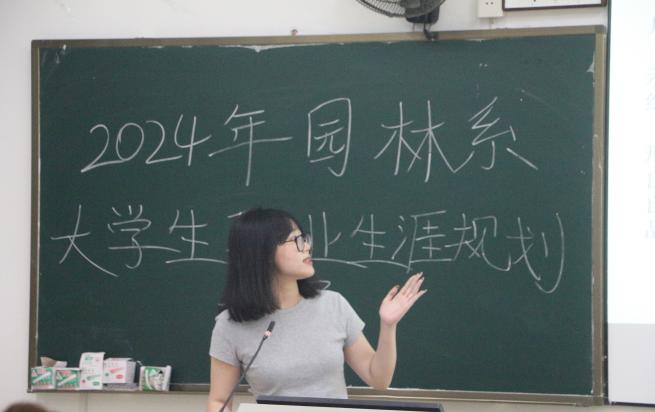 2024年园林系
大学生 业生涯规划